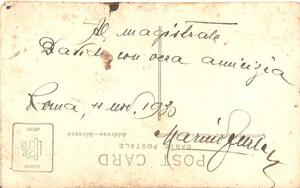 Al magistrale
Davide con vera amicizia
Roma, 4 nov. 1933
Mario
POST CARD
CARTE POSTALE
Address - Adresse